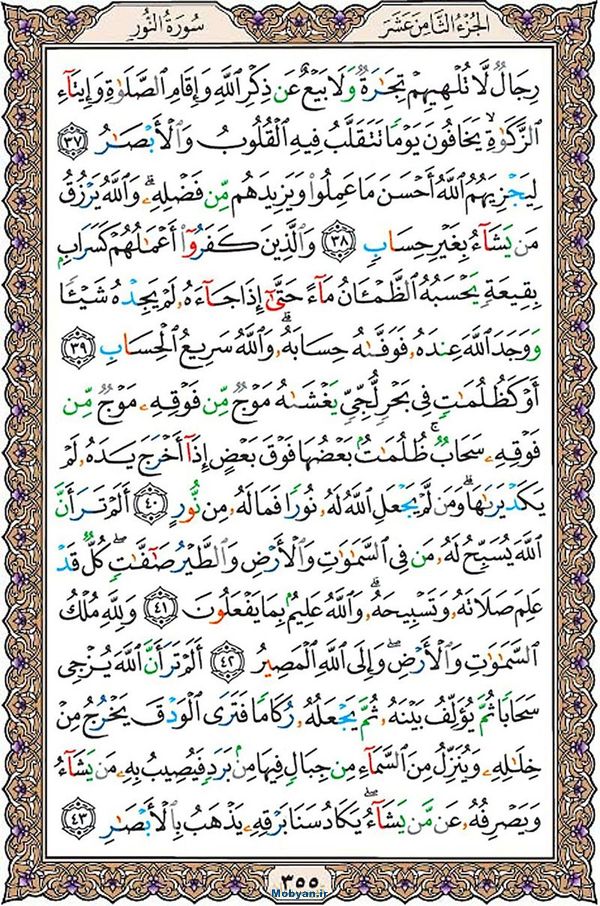 الجُزءُ الثَّامِنَ عَشَرَ
سُورَةُ النُّورِ
رِجَالٌ لَّا تُلْهِيهِمْ تِجَٰرَةٌ وَلَا بَيْعٌ عَن ذِكْرِ ٱللَّهِ وَإِقَامِ ٱلصَّلَوٰةِ وَإِيتَآءِ
ٱلزَّكَوٰةِ ۙ يَخَافُونَ يَوْمًا تَتَقَلَّبُ فِيهِ ٱلْقُلُوبُ وَٱلْأَبْصَٰرُ ٣٧
لِيَجْزِيَهُمُ ٱللَّهُ أَحْسَنَ مَا عَمِلُوا۟ وَيَزِيدَهُم مِّن فَضْلِهِۦ ۗ وَٱللَّهُ يَرْزُقُ
مَن يَشَآءُ بِغَيْرِ حِسَابٍ ٣٨ وَٱلَّذِينَ كَفَرُوٓا۟ أَعْمَٰلُهُمْ كَسَرَابٍۭ
بِقِيعَةٍ يَحْسَبُهُ ٱلظَّمْـَٔانُ مَآءً حَتَّىٰٓ إِذَا جَآءَهُۥ لَمْ يَجِدْهُ شَيْـًٔا
وَوَجَدَ ٱللَّهَ عِندَهُۥ فَوَفَّىٰهُ حِسَابَهُۥ ۗ وَٱللَّهُ سَرِيعُ ٱلْحِسَابِ ٣٩
أَوْ كَظُلُمَٰتٍ فِى بَحْرٍ لُّجِّىٍّ يَغْشَىٰهُ مَوْجٌ مِّن فَوْقِهِۦ مَوْجٌ مِّن
فَوْقِهِۦ سَحَابٌ ۚ ظُلُمَٰتٌۢ بَعْضُهَا فَوْقَ بَعْضٍ إِذَآ أَخْرَجَ يَدَهُۥ لَمْ
يَكَدْ يَرَىٰهَا ۗ وَمَن لَّمْ يَجْعَلِ ٱللَّهُ لَهُۥ نُورًا فَمَا لَهُۥ مِن نُّورٍ ٤٠ أَلَمْ تَرَ أَنَّ
ٱللَّهَ يُسَبِّحُ لَهُۥ مَن فِى ٱلسَّمَٰوَٰتِ وَٱلْأَرْضِ وَٱلطَّيْرُ صَٰٓفَّٰتٍ ۖ كُلٌّ قَدْ
عَلِمَ صَلَاتَهُۥ وَتَسْبِيحَهُۥ ۗ وَٱللَّهُ عَلِيمٌۢ بِمَا يَفْعَلُونَ ٤١ وَلِلَّهِ مُلْكُ
ٱلسَّمَٰوَٰتِ وَٱلْأَرْضِ ۖ وَإِلَى ٱللَّهِ ٱلْمَصِيرُ ٤٢ أَلَمْ تَرَ أَنَّ ٱللَّهَ يُزْجِى
سَحَابًا ثُمَّ يُؤَلِّفُ بَيْنَهُۥ ثُمَّ يَجْعَلُهُۥ رُكَامًا فَتَرَى ٱلْوَدْقَ يَخْرُجُ مِنْ
خِلَٰلِهِۦ وَيُنَزِّلُ مِنَ ٱلسَّمَآءِ مِن جِبَالٍ فِيهَا مِنۢ بَرَدٍ فَيُصِيبُ بِهِۦ مَن يَشَآءُ
وَيَصْرِفُهُۥ عَن مَّن يَشَآءُ ۖ يَكَادُ سَنَا بَرْقِهِۦ يَذْهَبُ بِٱلْأَبْصَٰرِ ٤٣
٣٥٥
Mobyan.ir